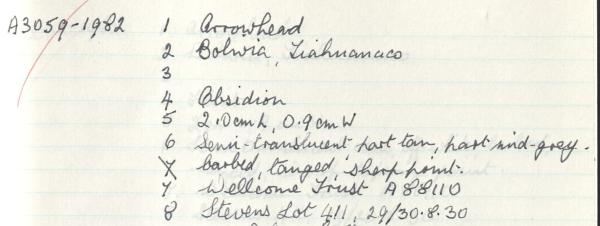 A3059-1982 1 Arrowhead
2 Bolivia, Tiahuanaco
3
4 Obsidion
5 2.0cm L, 0.9cm W
6 Semi-translucent, part tan, part mid-grey.
7 barbed, tanged, sharp point.
7 Wellcome Trust A88110
8 Stevens Lot 411, 29/30.8.30